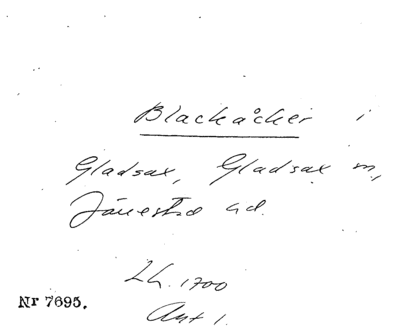 Blackåcker i
Gladsax, Gladsax sn,
Järrestad hd.
Lh. 1700
Akt 1.
Nr 7695.